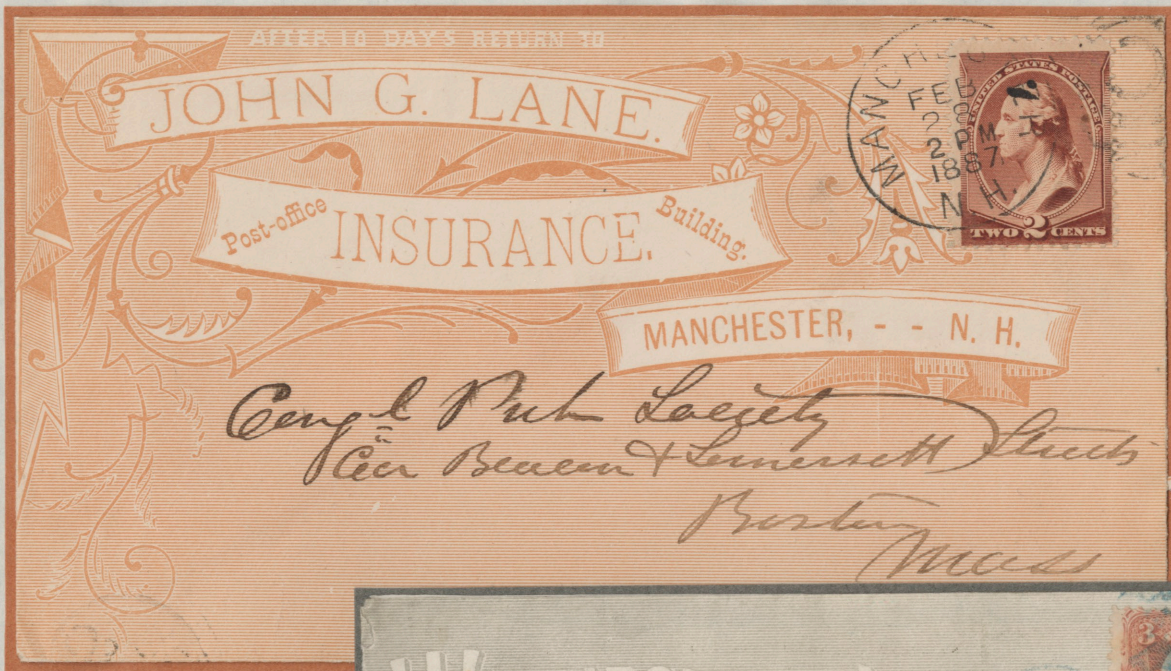 AFTER 10 DAYS RETURN TO
JOHN G. LANE.
Post-office INSURANCE. Building.
MANCHESTER, - - N. H.
FEB
28
2 PM
1887
N.H.
UNITED STATES POSTAGE
2
TWO CENTS
Congl Pub Society
Cor Beacon & Somersett Streets
Boston
Mass
3